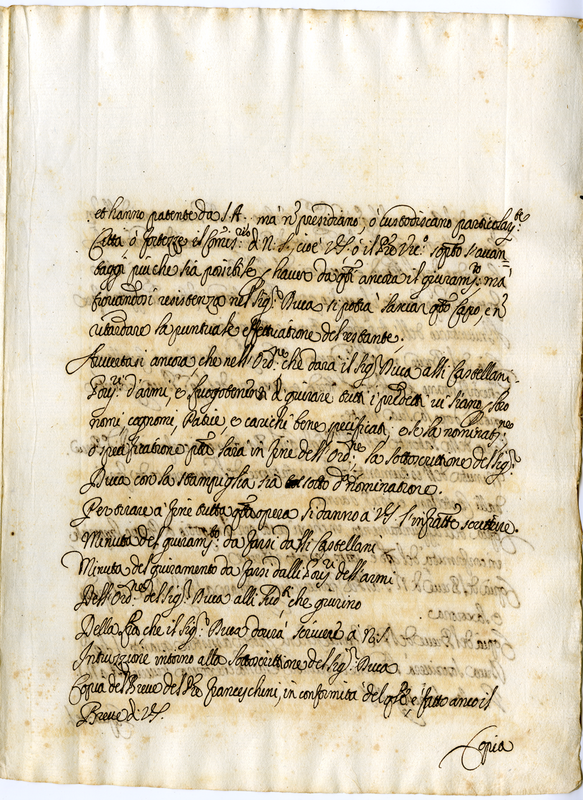 et hanno patente da S.A. mà nõ presidiano, ò custodiscano particolar.te
Città ò fortezze il Comis.rio di N. S. cioè V.S. ò il P.re Vic.o sop.to s'avan-
taggi più che sia possibile haver da q.ti ancora il giuram.to mà
trovandosi resistenza nel Sig.r Duca si potrà lasciar q.to Capo, e nõ
ritardare la puntuale effettuatione del restante.
Avvertasi ancora che nell'Ord.ne che darà il Sig.r Duca alli Castellani,
Gov.ri d'armi, e luogotenenti di giurare tutti i predetti vi siano, loro
nomi, cognomi, Patrie e carichi bene specificati, e se la nominati.ne
ò specificatione p.ta sarà in fine dell'Ord.ne la sottoscrittione del Sig.r
Duca con la stampiglia sia sotto d.a nominatione.
Per tirare a fine tutta q.ta opera si danno à V.S. l'infratte scritture.
Minuta del giuram.to da farsi dalli Castellani
Minuta del giuramento da farsi dalli Gov.ri dell'armi
Dell'Ord.ne del Sig.r Duca alli Sud.ti che giurino
Della lra che il Sig.r Duca dovrà scrivere à N. S.
Instruzzione intorno alla sottoscrittione del Sig.r Duca
Copia del Breve del P.re Franceschini, in conformità del q.le è fatto anco il
Breve di V.S.
Copia